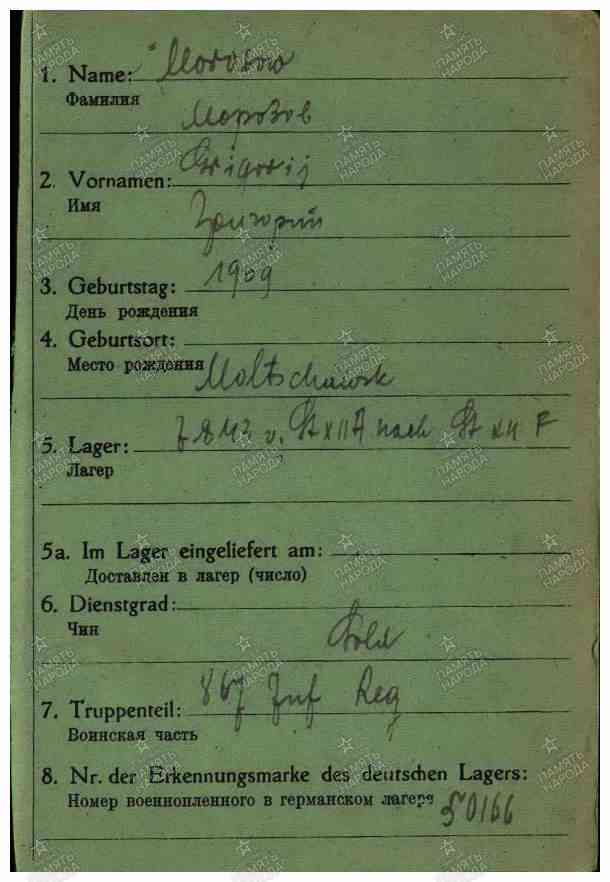 1. Name: Morosow
Фамилия
Морозов
Grigorij
2. Vornamen:
Имя
Григорий
3. Geburtstag: 1909
День рождения
4. Geburtsort:
Место рождения Moltschansk
5. Lager: v. St XII A nach St XII F
Лагер
5a. Im Lager eingeliefert am:
Доставлен в лагер (число)
6. Dienstgrad:
Чин
Sold
7. Truppenteil: 867 Inf Reg
Воинская часть
8. Nr. der Erkennungsmarke des deutschen Lagers:
Номер военнопленного в германском лагере 50166
ПАМЯТЬ НАРОДА